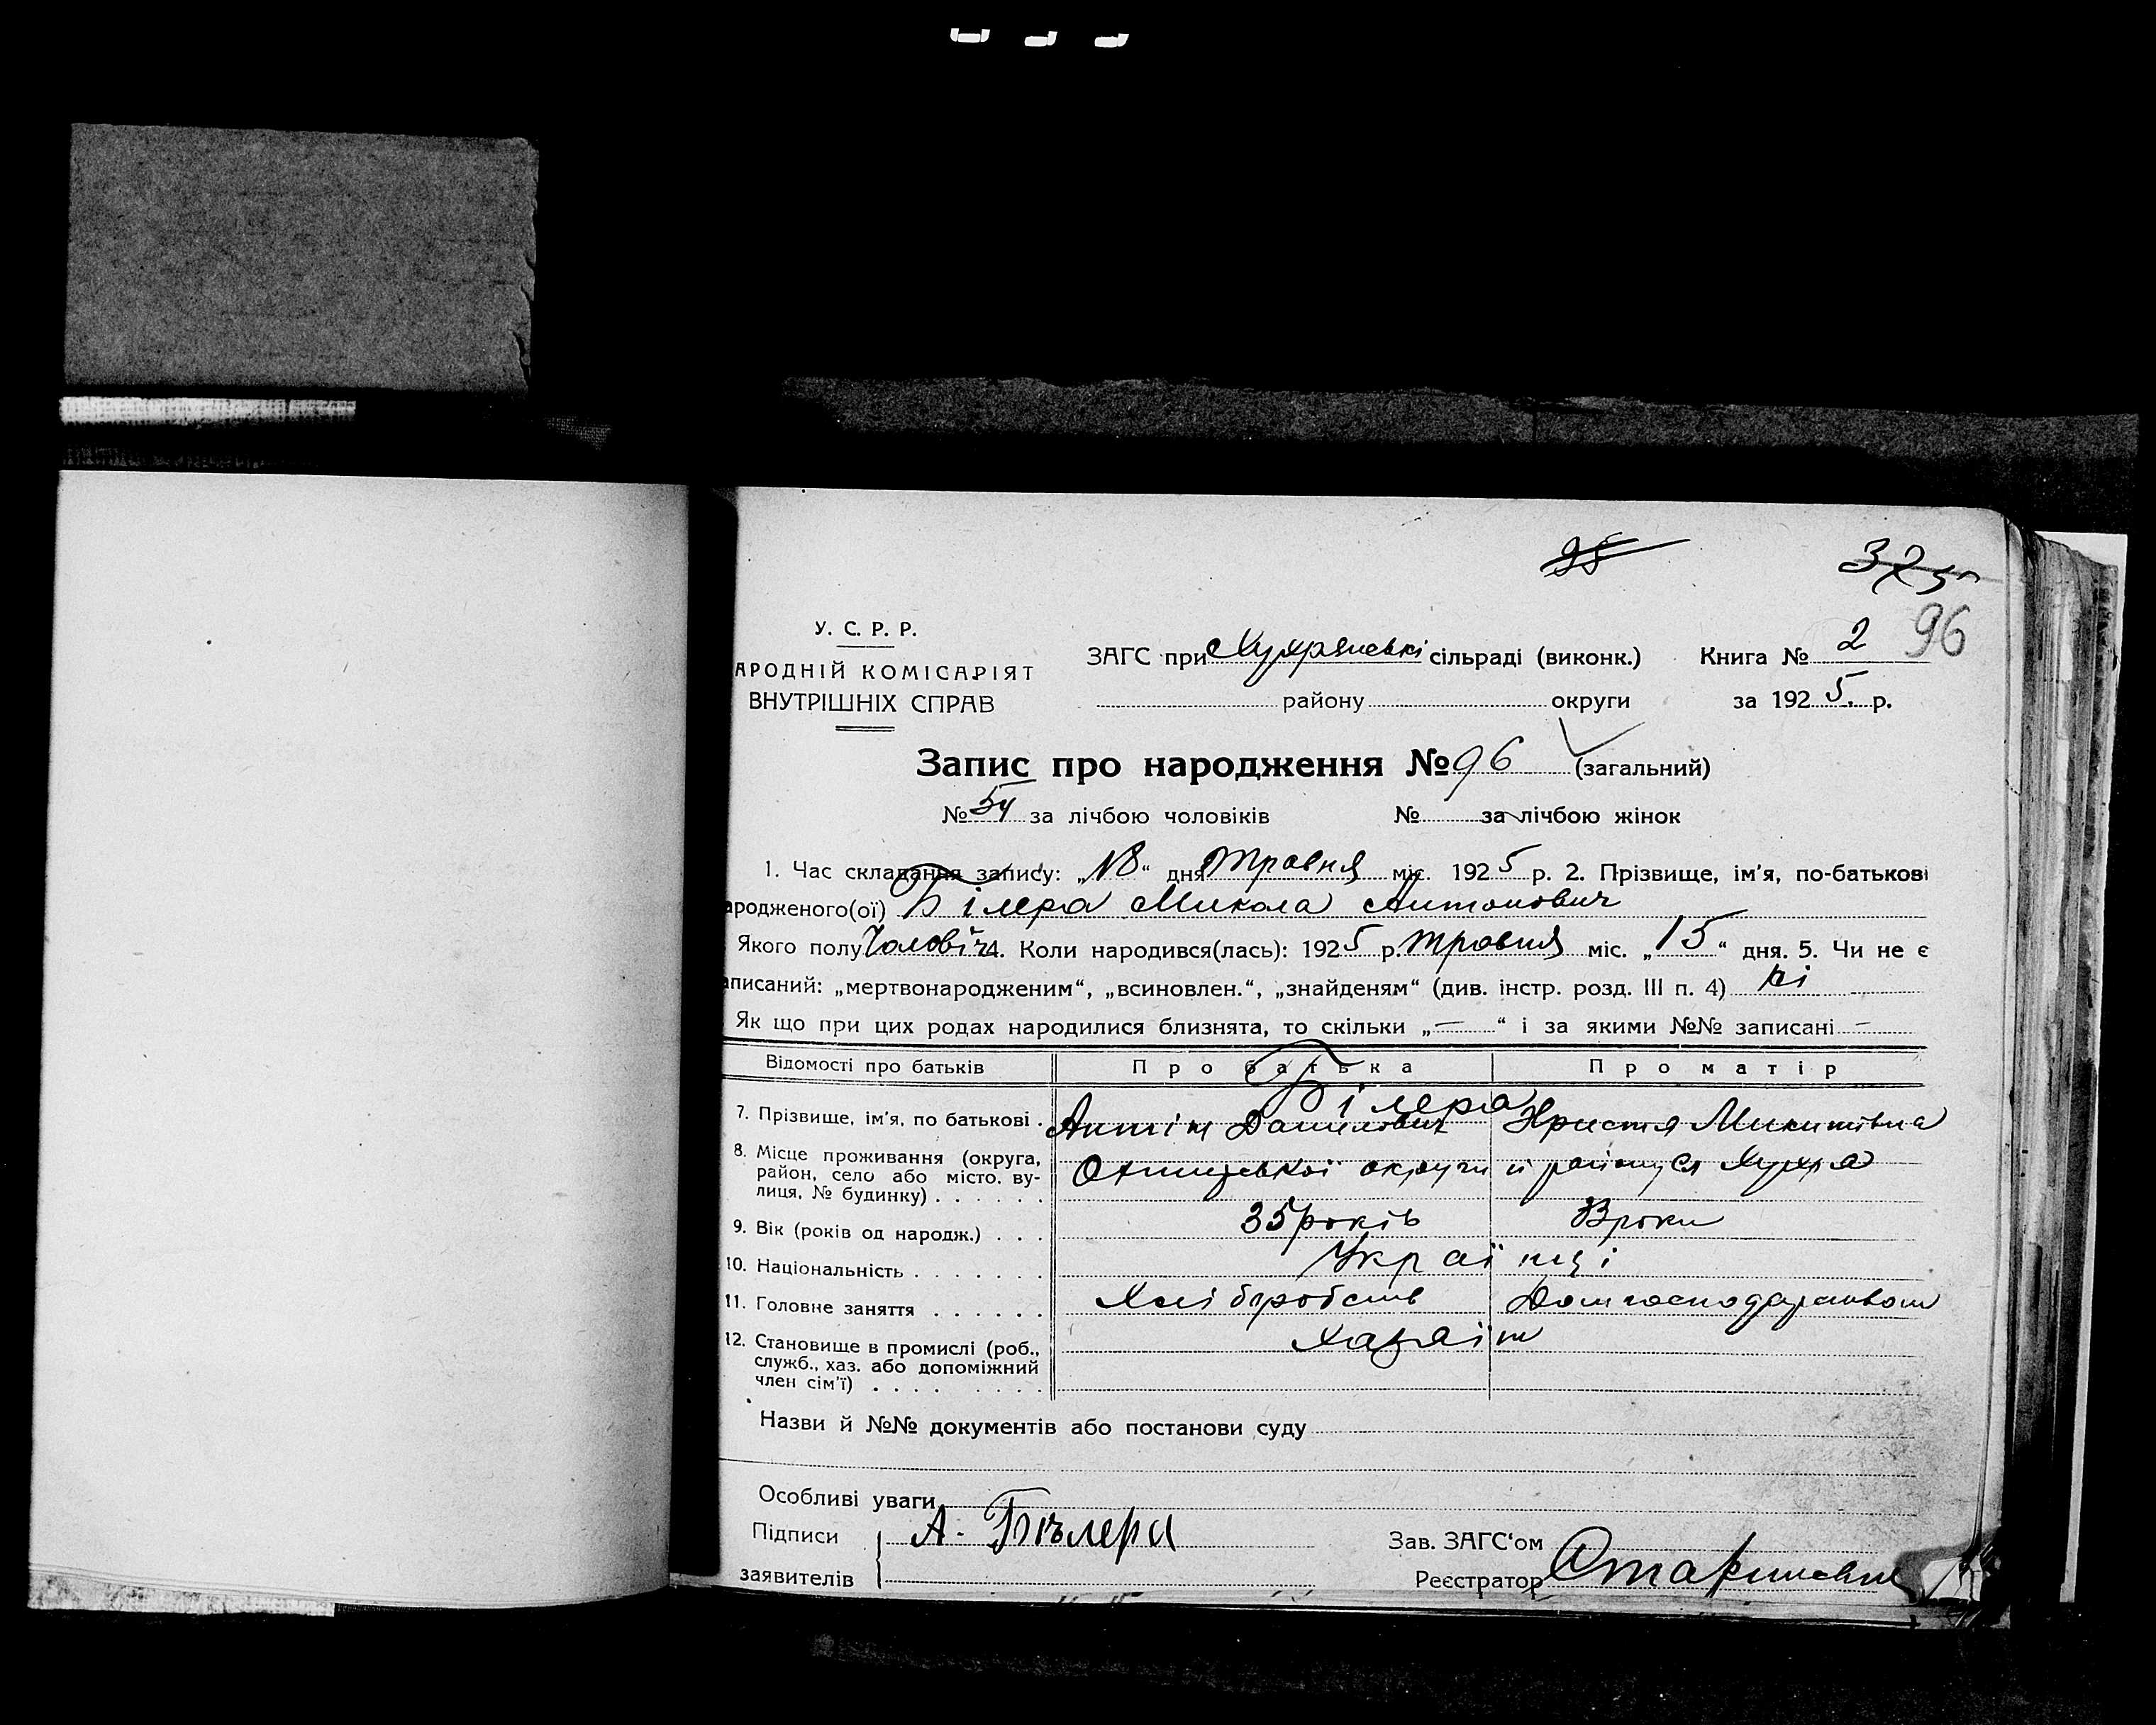 95
375
96
У. С. Р. Р.
АРОДНІЙ КОМІСАРІЯТ
ВНУТРІШНІХ СПРАВ
ЗАГС при Хухрянські сільраді (виконк.) Книга № 2
району округи за 1925. р.
Запис про народження № 96 (загальний)
№ 54 за лічбою чоловіків № за лічбою жінок
1. Час складання запису: „18“ дня травня міс. 1925 р. 2. Прізвище, ім'я, по-батькові
ародженого(ої) Білера Микола Антонович
Якого полу Чоловіч 4. Коли народився(лась): 1925 р. травня міс. „15“ дня. 5. Чи не є
аписаний: „мертвонародженим“, „всиновлен.“, „знайденям“ (див. інстр. розд. III п. 4) ні
Як що при цих родах народилися близнята, то скільки „—“ і за якими №№ записані —
Відомості про батьків Про батька Про матір
Білера
7. Прізвище, ім'я, по батькові . Антін Данилович Христя Микитівна
8. Місце проживання (округа, район, село або місто. вулиця, № будинку) . . . . . . округи й району с. Хухра
9. Вік (років од народж.) . . . 35 років роки
10. Національність . . . . . . . Українці
11. Головне заняття . . . . . . Хліборобств Домгосподарством
12. Становище в промислі (роб., служб., хаз. або допоміжний член сім'ї) . . . . . . . . Хазяін
Назви й №№ документів або постанови суду
Особливі уваги
Підписи А. Бѣлера Зав. ЗАГС'ом
заявителів Реєстратор